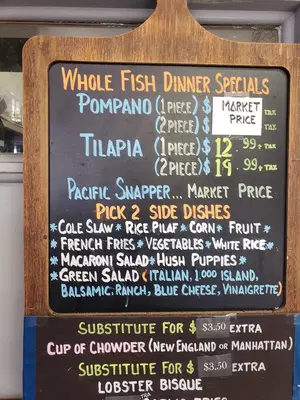 WHOLE FISH DINNER SPECIALS
POMPANO (1 PIECE) $ MARKET PRICE TAX
(2 PIECE) $ TAX
TILAPIA (1 PIECE) $ 12.99 + TAX
(2 PIECE) $ 19.99 + TAX
PACIFIC SNAPPER... MARKET PRICE
PICK 2 SIDE DISHES
*COLE SLAW * RICE PILAF * CORN * FRUIT *
*FRENCH FRIES * VEGETABLES * WHITE RICE *
*MACARONI SALAD * HUSH PUPPIES *
*GREEN SALAD (ITALIAN, 1,000 ISLAND,
BALSAMIC, RANCH, BLUE CHEESE, VINAIGRETTE)
SUBSTITUTE FOR $ $3.50 EXTRA
CUP OF CHOWDER (NEW ENGLAND OR MANHATTAN)
SUBSTITUTE FOR $ $3.50 EXTRA
LOBSTER BISQUE